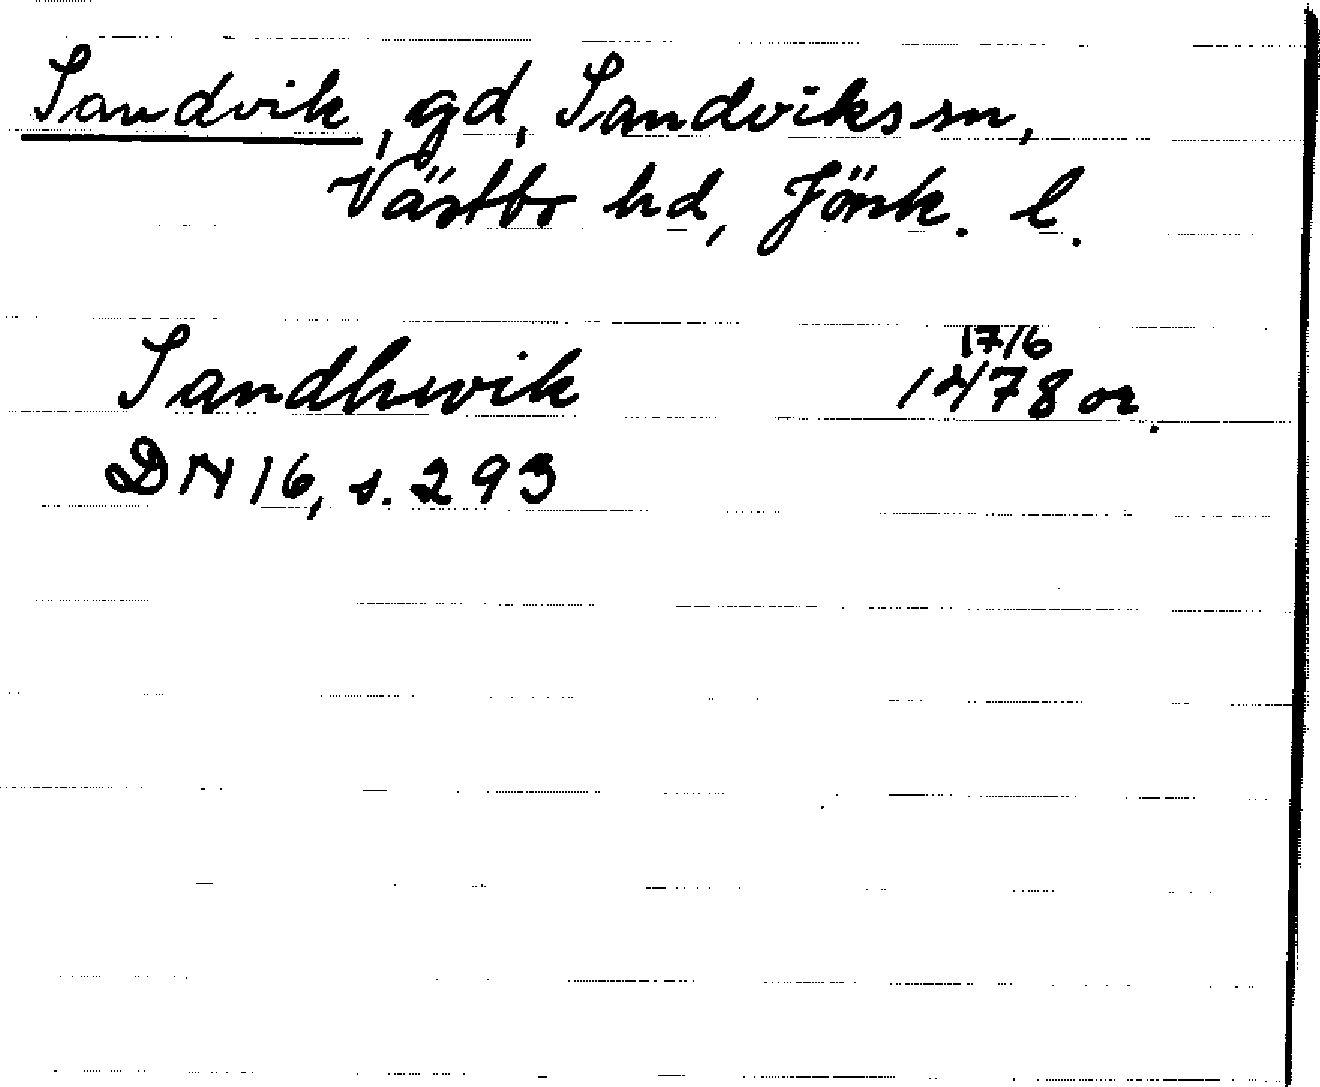 Sandvik, gd, Sandviks sn,
Västbo hd, Jönk. l.
17/6
Sandhwik 1478 or.
DN 16, s. 293